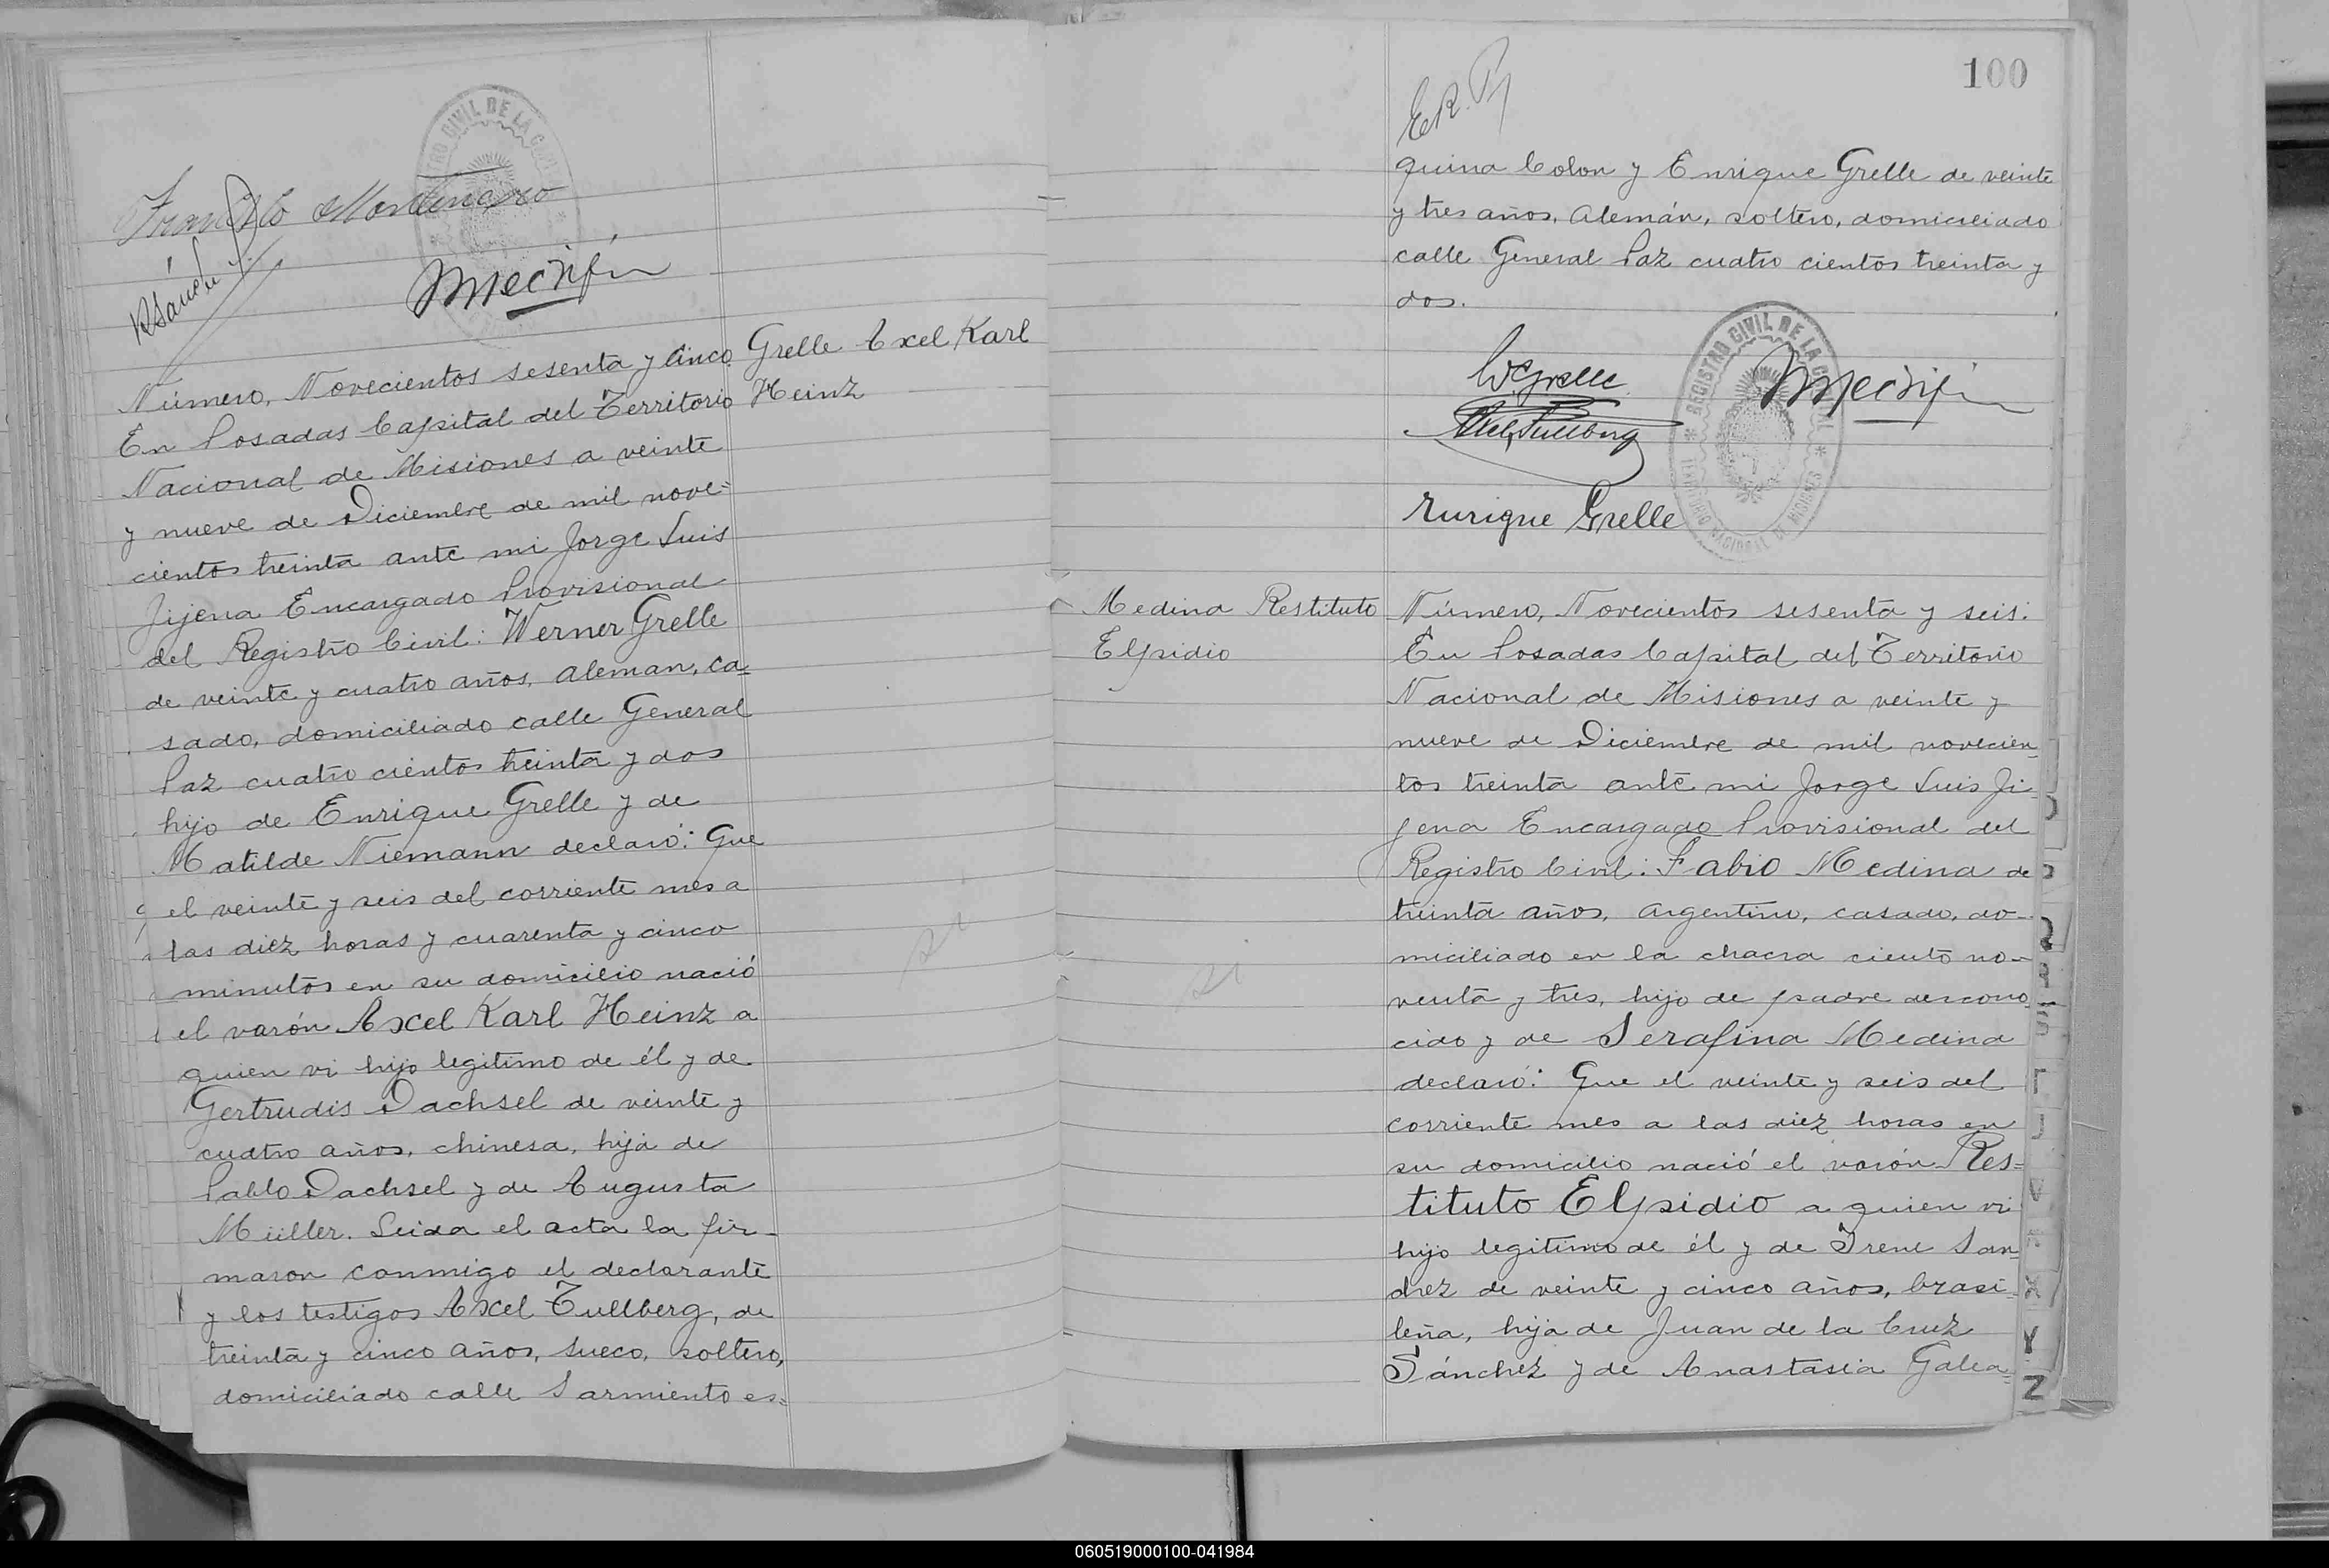 REGISTRO CIVIL DE LA
Número, Novecientos sesenta y cinco.
Grelle Axel Karl
Heinz
En Posadas Capital del Territorio
Nacional de Misiones a veinte
y nueve de Diciembre de mil nove=
cientos treinta ante mi Jorge Luis
Jijena Encargado Provisional
del Registro Civil: Werner Grelle
de veinte y cuatro años, aleman, ca=
sado, domiciliado calle General
Paz cuatro cientos treinta y dos
hijo de Enrique Grelle y de
Matilde Niemann declaró: Que
el veinte y seis del corriente mes a
las diez horas y cuarenta y cinco
minutos en su domicilio nació
el varón Axel Karl Heinz a
quien vi hijo legitimo de él y de
Gertrudis Dachsel de veinte y
cuatro años, chinesa, hija de
Pablo Dachsel y de Augusta
Müller. Leida el acta la fir-
maron conmigo el declarante
y los testigos Axel Tullberg, de
treinta y cinco años, sueco, soltero,
domiciliado calle Sarmiento es=
100
quina Colon y Enrique Grelle de veinte
y tres años, alemán, soltero, domiciliado
calle General Paz cuatro cientos treinta y
dos.
WGrelle
Axel Tullberg
Enrique Grelle
REGISTRO CIVIL DE LA
TERRITORIO NACIONAL DE MISIONES
Medina Restituto
Elpidio
Número, Novecientos sesenta y seis.
En Posadas Capital del Territorio
Nacional de Misiones a veinte y
nueve de Diciembre de mil novecien=
tos treinta ante mi Jorge Luis Ji=
jena Encargado Provisional del
Registro Civil: Fabio Medina de
treinta años, argentino, casado, do-
miciliado en la chacra ciento no-
venta y tres, hijo de padre descono
cido y de Serafina Medina
declaró: Que el veinte y seis del
corriente mes a las diez horas en
su domicilio nació el varón Res=
tituto Elpidio a quien vi
hijo legitimo de él y de Irene San
chez de veinte y cinco años, brasi
leña, hija de Juan de la Cruz
Sánchez y de Anastasia Galea=
X
Y
Z
060519000100-041984